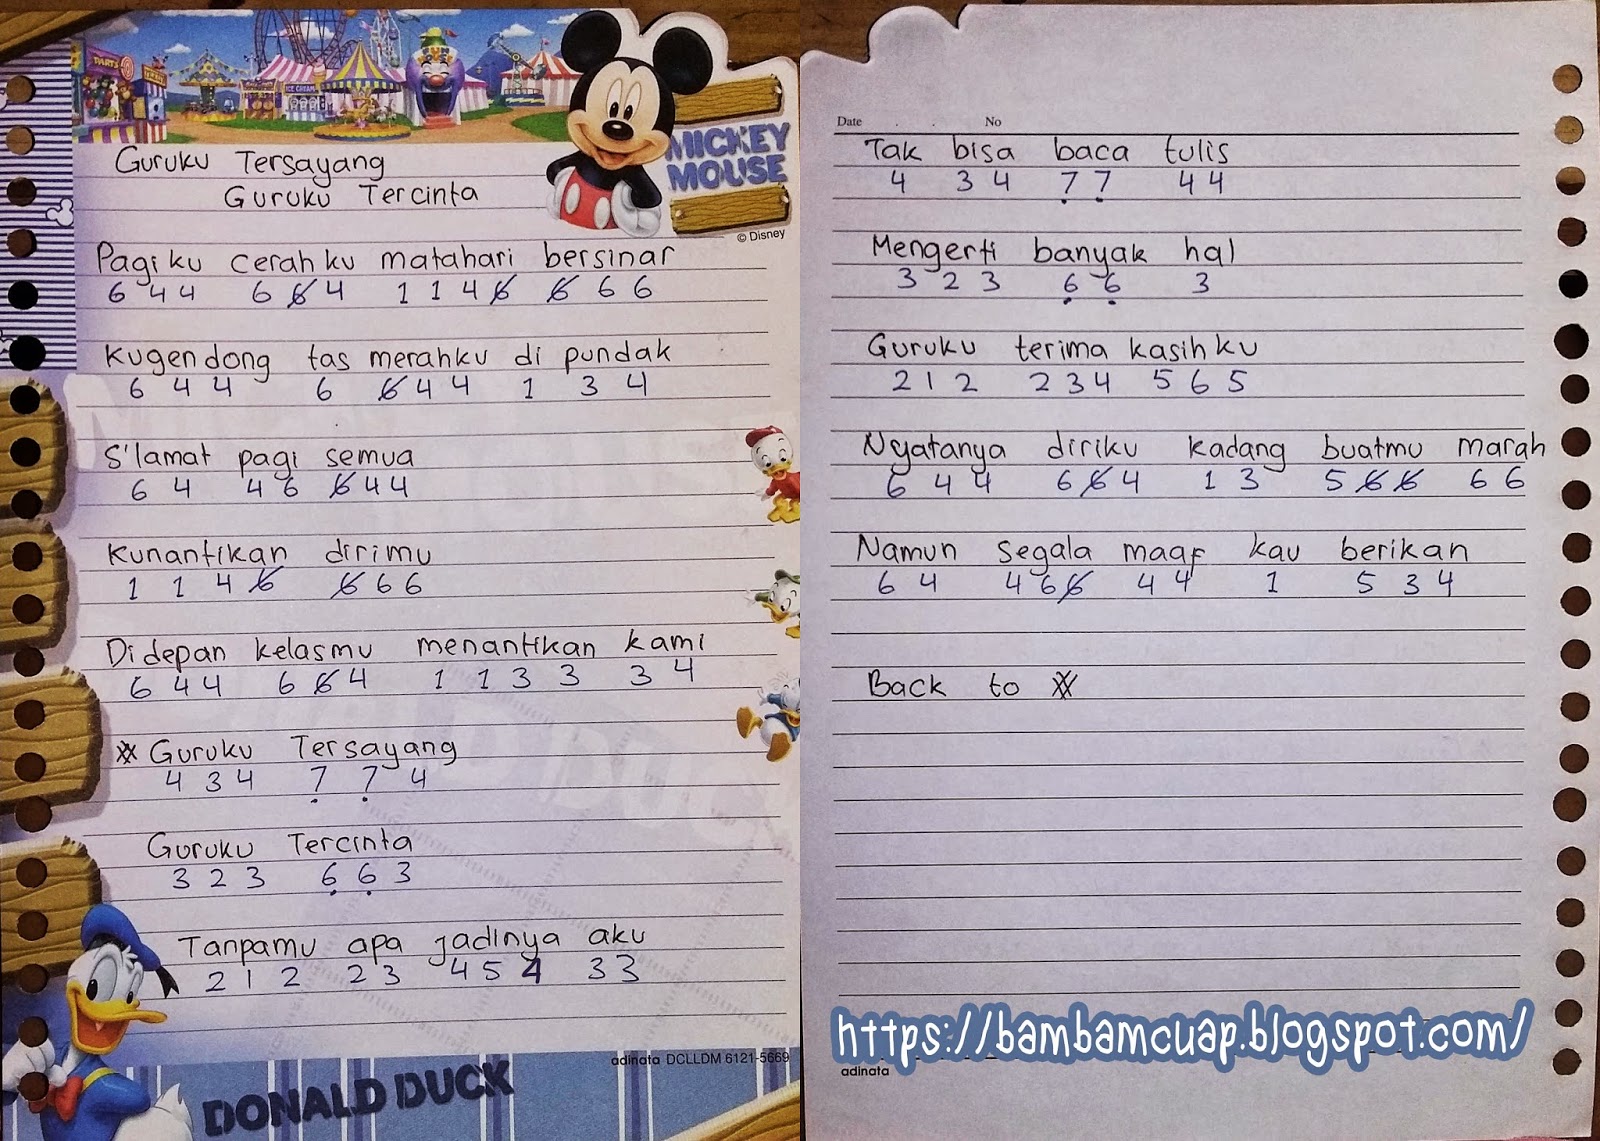 PARTS
ICE CREAM
MICKEY
MOUSE
© Disney
Guruku Tersayang
Guruku Tercinta
Pagiku cerahku matahari bersinar
6 4 4 6 6̸ 4 1 1 4 6̸ 6̸ 6 6
Kugendong tas merahku di pundak
6 4 4 6 6̸ 4 4 1 3 4
S'lamat pagi semua
6 4 4 6 6̸ 4 4
Kunantikan dirimu
1 1 4 6̸ 6̸ 6 6
Didepan kelasmu menantikan kami
6 4 4 6 6̸ 4 1 1 3 3 3 4
Guruku Tersayang
4 3 4 7̣ 7̣ 4
Guruku Tercinta
3 2 3 6̣ 6̣ 3
Tanpamu apa jadinya aku
2 1 2 2 3 4 5 4 3 3
adinata DCLLDM 6121-5669
DONALD DUCK
Date . . No
Tak bisa baca tulis
4 3 4 7̣ 7̣ 4 4
Mengerti banyak hal
3 2 3 6̣ 6̣ 3
Guruku terima kasihku
2 1 2 2 3 4 5 6 5
Nyatanya diriku kadang buatmu marah
6 4 4 6 6̸ 4 1 3 5 6̸ 6̸ 6 6
Namun segala maaf kau berikan
6 4 4 6 6̸ 4 4 1 5 3 4
Back to
https://bambamcuap.blogspot.com/
adinata